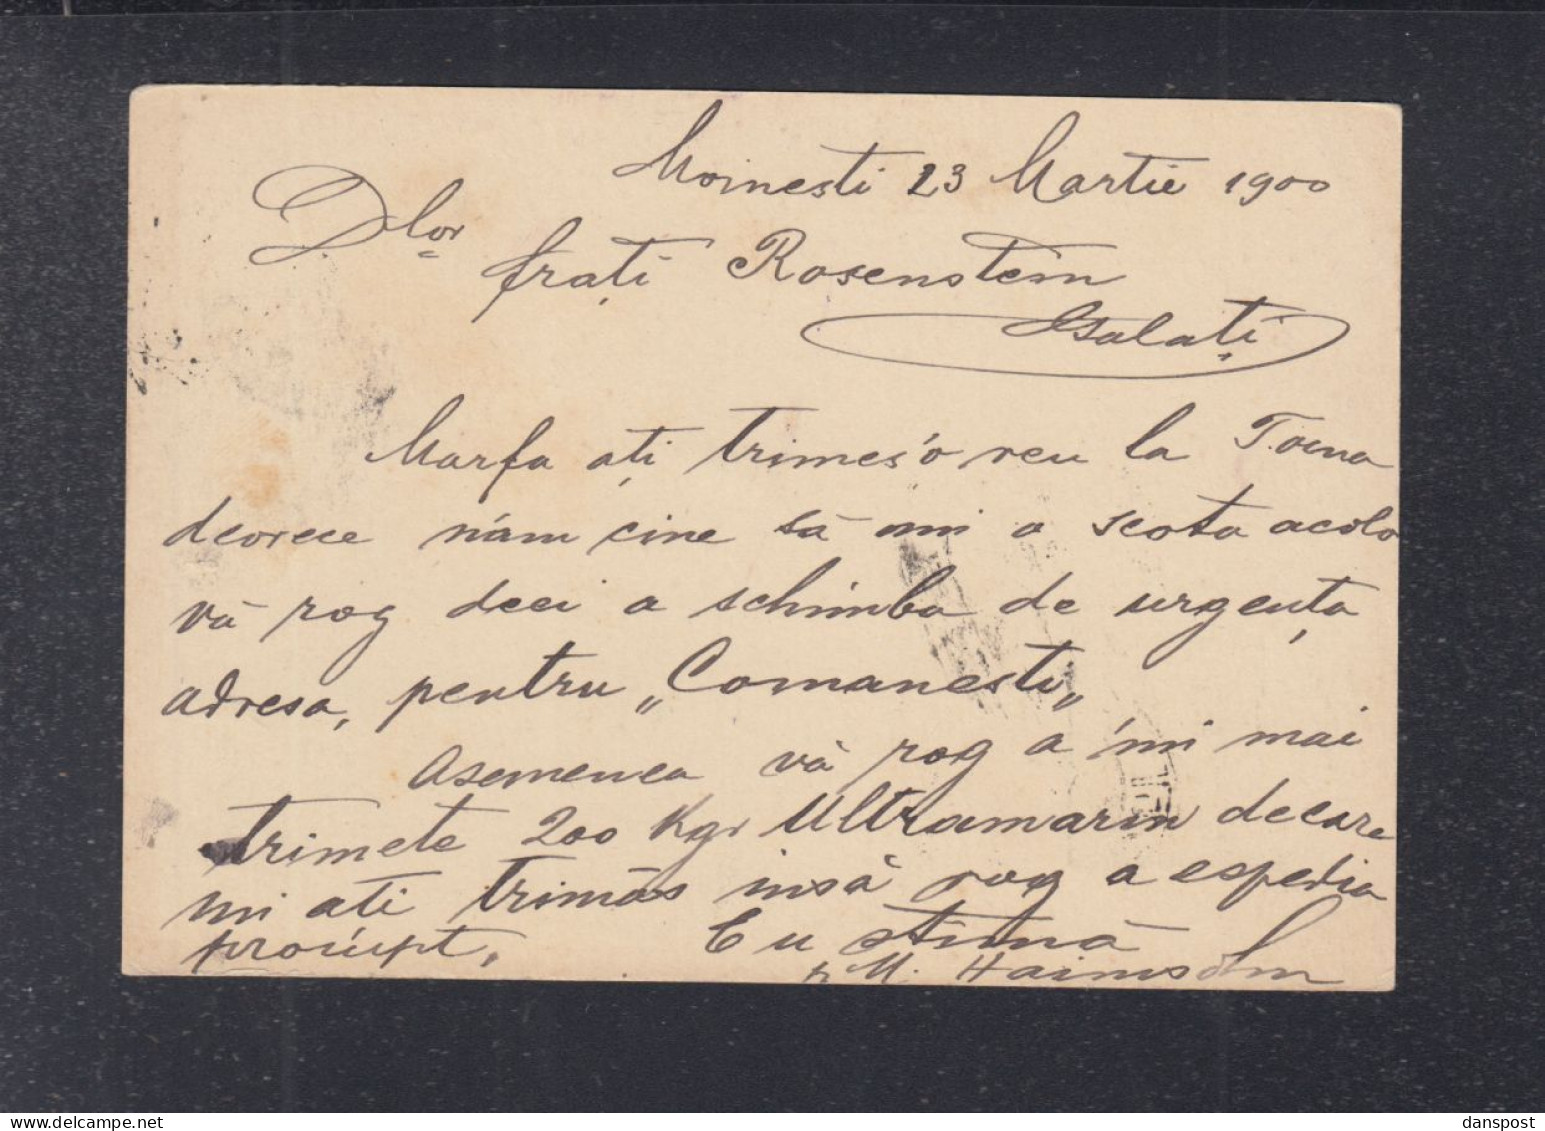 Moinesti 23 Martie 1900
Dlor
frați Rosenstein
Galați
Marfa ați trimes'o reu la T. Ocna
deorece n'am cine să mi o scota acolo
vă rog deci a schimba de urgență
adresa, pentru „Comanesti„
Asemenea vă rog a 'mi mai
trimete 200 Kgr Ultramarin decare
mi ati trimăs insă rog a espedia
prompt. Cu stimă
p. M. Haimsohn
danspost
www.delcampe.net